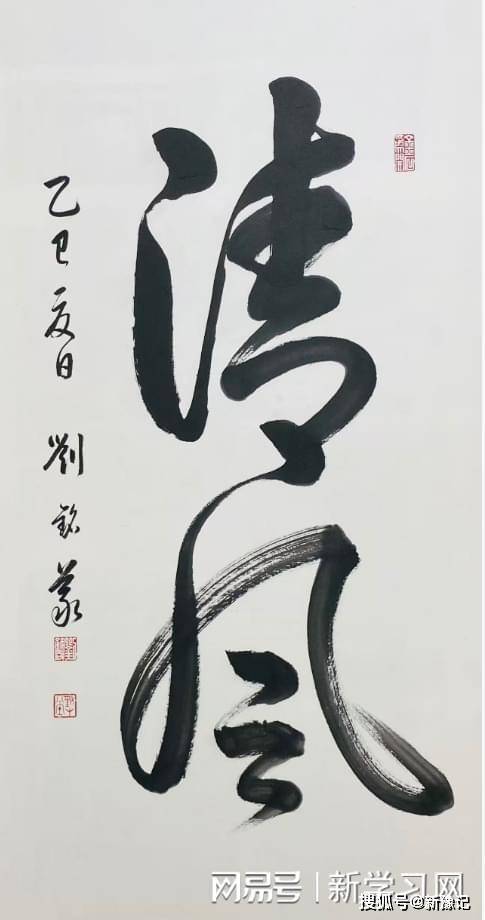 清风
乙巳夏日 劉銘義
网易号 | 新学习网
搜狐号@新豫记